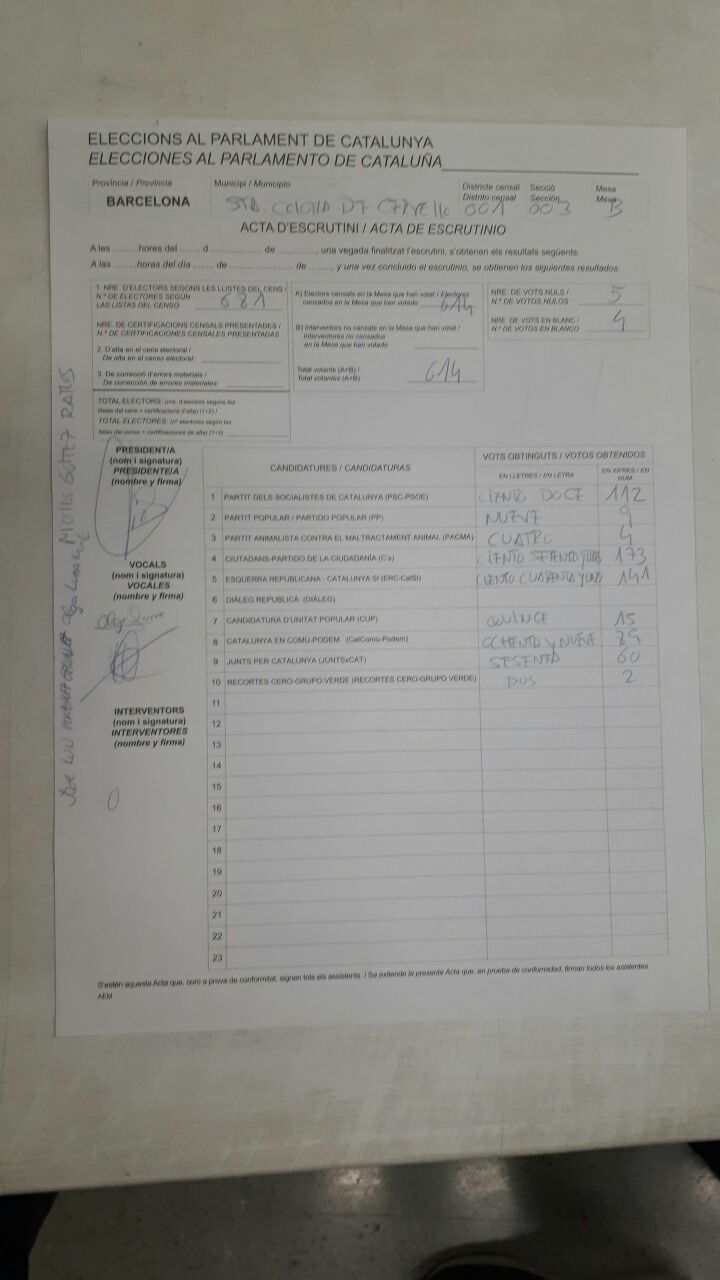 ELECCIONS AL PARLAMENT DE CATALUNYA
ELECCIONES AL PARLAMENTO DE CATALUÑA
Província / Provincia
Municipi / Municipio
Districte censal Secció Mesa
Distrito censal Sección Mesa
BARCELONA STA. COLOMA DE CERVELLO 001 003 B
ACTA D'ESCRUTINI / ACTA DE ESCRUTINIO
A les ..........hores del ........ d .................... de ............, una vegada finalitzat l'escrutini, s'obtenen els resultats següents:
A las ..........horas del día ........ de .................... de ........, y una vez concluido el escrutinio, se obtienen los siguientes resultados:
1. NRE. D'ELECTORS SEGONS LES LLISTES DEL CENS /
N.º DE ELECTORES SEGÚN
LAS LISTAS DEL CENSO 681
NRE. DE CERTIFICACIONS CENSALS PRESENTADES /
N.º DE CERTIFICACIONES CENSALES PRESENTADAS
2. D'alta en el cens electoral /
De alta en el censo electoral:
3. De correcció d'errors materials /
De corrección de errores materiales:
TOTAL ELECTORS: (nre. d'electors segons les
llistes del cens + certificacions d'alta) (1+2) /
TOTAL ELECTORES: (nº electores según las
listas del censo + certificaciones de alta) (1+2)
A) Electors censats en la Mesa que han votat / Electores
censados en la Mesa que han votado 614
B) Interventors no censats en la Mesa que han votat /
Interventores no censados
en la Mesa que han votado
Total votants (A+B) /
Total votantes (A+B) 614
NRE. DE VOTS NULS /
N.º DE VOTOS NULOS 5
NRE. DE VOTS EN BLANC /
N.º DE VOTOS EN BLANCO 4
PRESIDENT/A
(nom i signatura)
PRESIDENTE/A
(nombre y firma)
VOCALS
(nom i signatura)
VOCALES
(nombre y firma)
Olga Luna
INTERVENTORS
(nom i signatura)
INTERVENTORES
(nombre y firma)
0
CANDIDATURES / CANDIDATURAS
VOTS OBTINGUTS / VOTOS OBTENIDOS
EN LLETRES / EN LETRA
EN XIFRES / EN NÚM
1 PARTIT DELS SOCIALISTES DE CATALUNYA (PSC-PSOE) CIENTO DOCE 112
2 PARTIT POPULAR / PARTIDO POPULAR (PP) NUEVE 9
3 PARTIT ANIMALISTA CONTRA EL MALTRACTAMENT ANIMAL (PACMA) CUATRO 4
4 CIUTADANS-PARTIDO DE LA CIUDADANÍA (C's) CIENTO SETENTA Y TRES 173
5 ESQUERRA REPUBLICANA - CATALUNYA SÍ (ERC-CatSí) CIENTO CUARENTA Y UNO 141
6 DIÀLEG REPUBLICÀ (DIÀLEG)
7 CANDIDATURA D'UNITAT POPULAR (CUP) QUINCE 15
8 CATALUNYA EN COMÚ-PODEM (CatComú-Podem) OCHENTA Y NUEVE 89
9 JUNTS PER CATALUNYA (JUNTSxCAT) SESENTA 60
10 RECORTES CERO-GRUPO VERDE (RECORTES CERO-GRUPO VERDE) DOS 2
11
12
13
14
15
16
17
18
19
20
21
22
23
S'estén aquesta Acta que, com a prova de conformitat, signen tots els assistents. / Se extiende la presente Acta que, en prueba de conformidad, firman todos los asistentes.
AEM